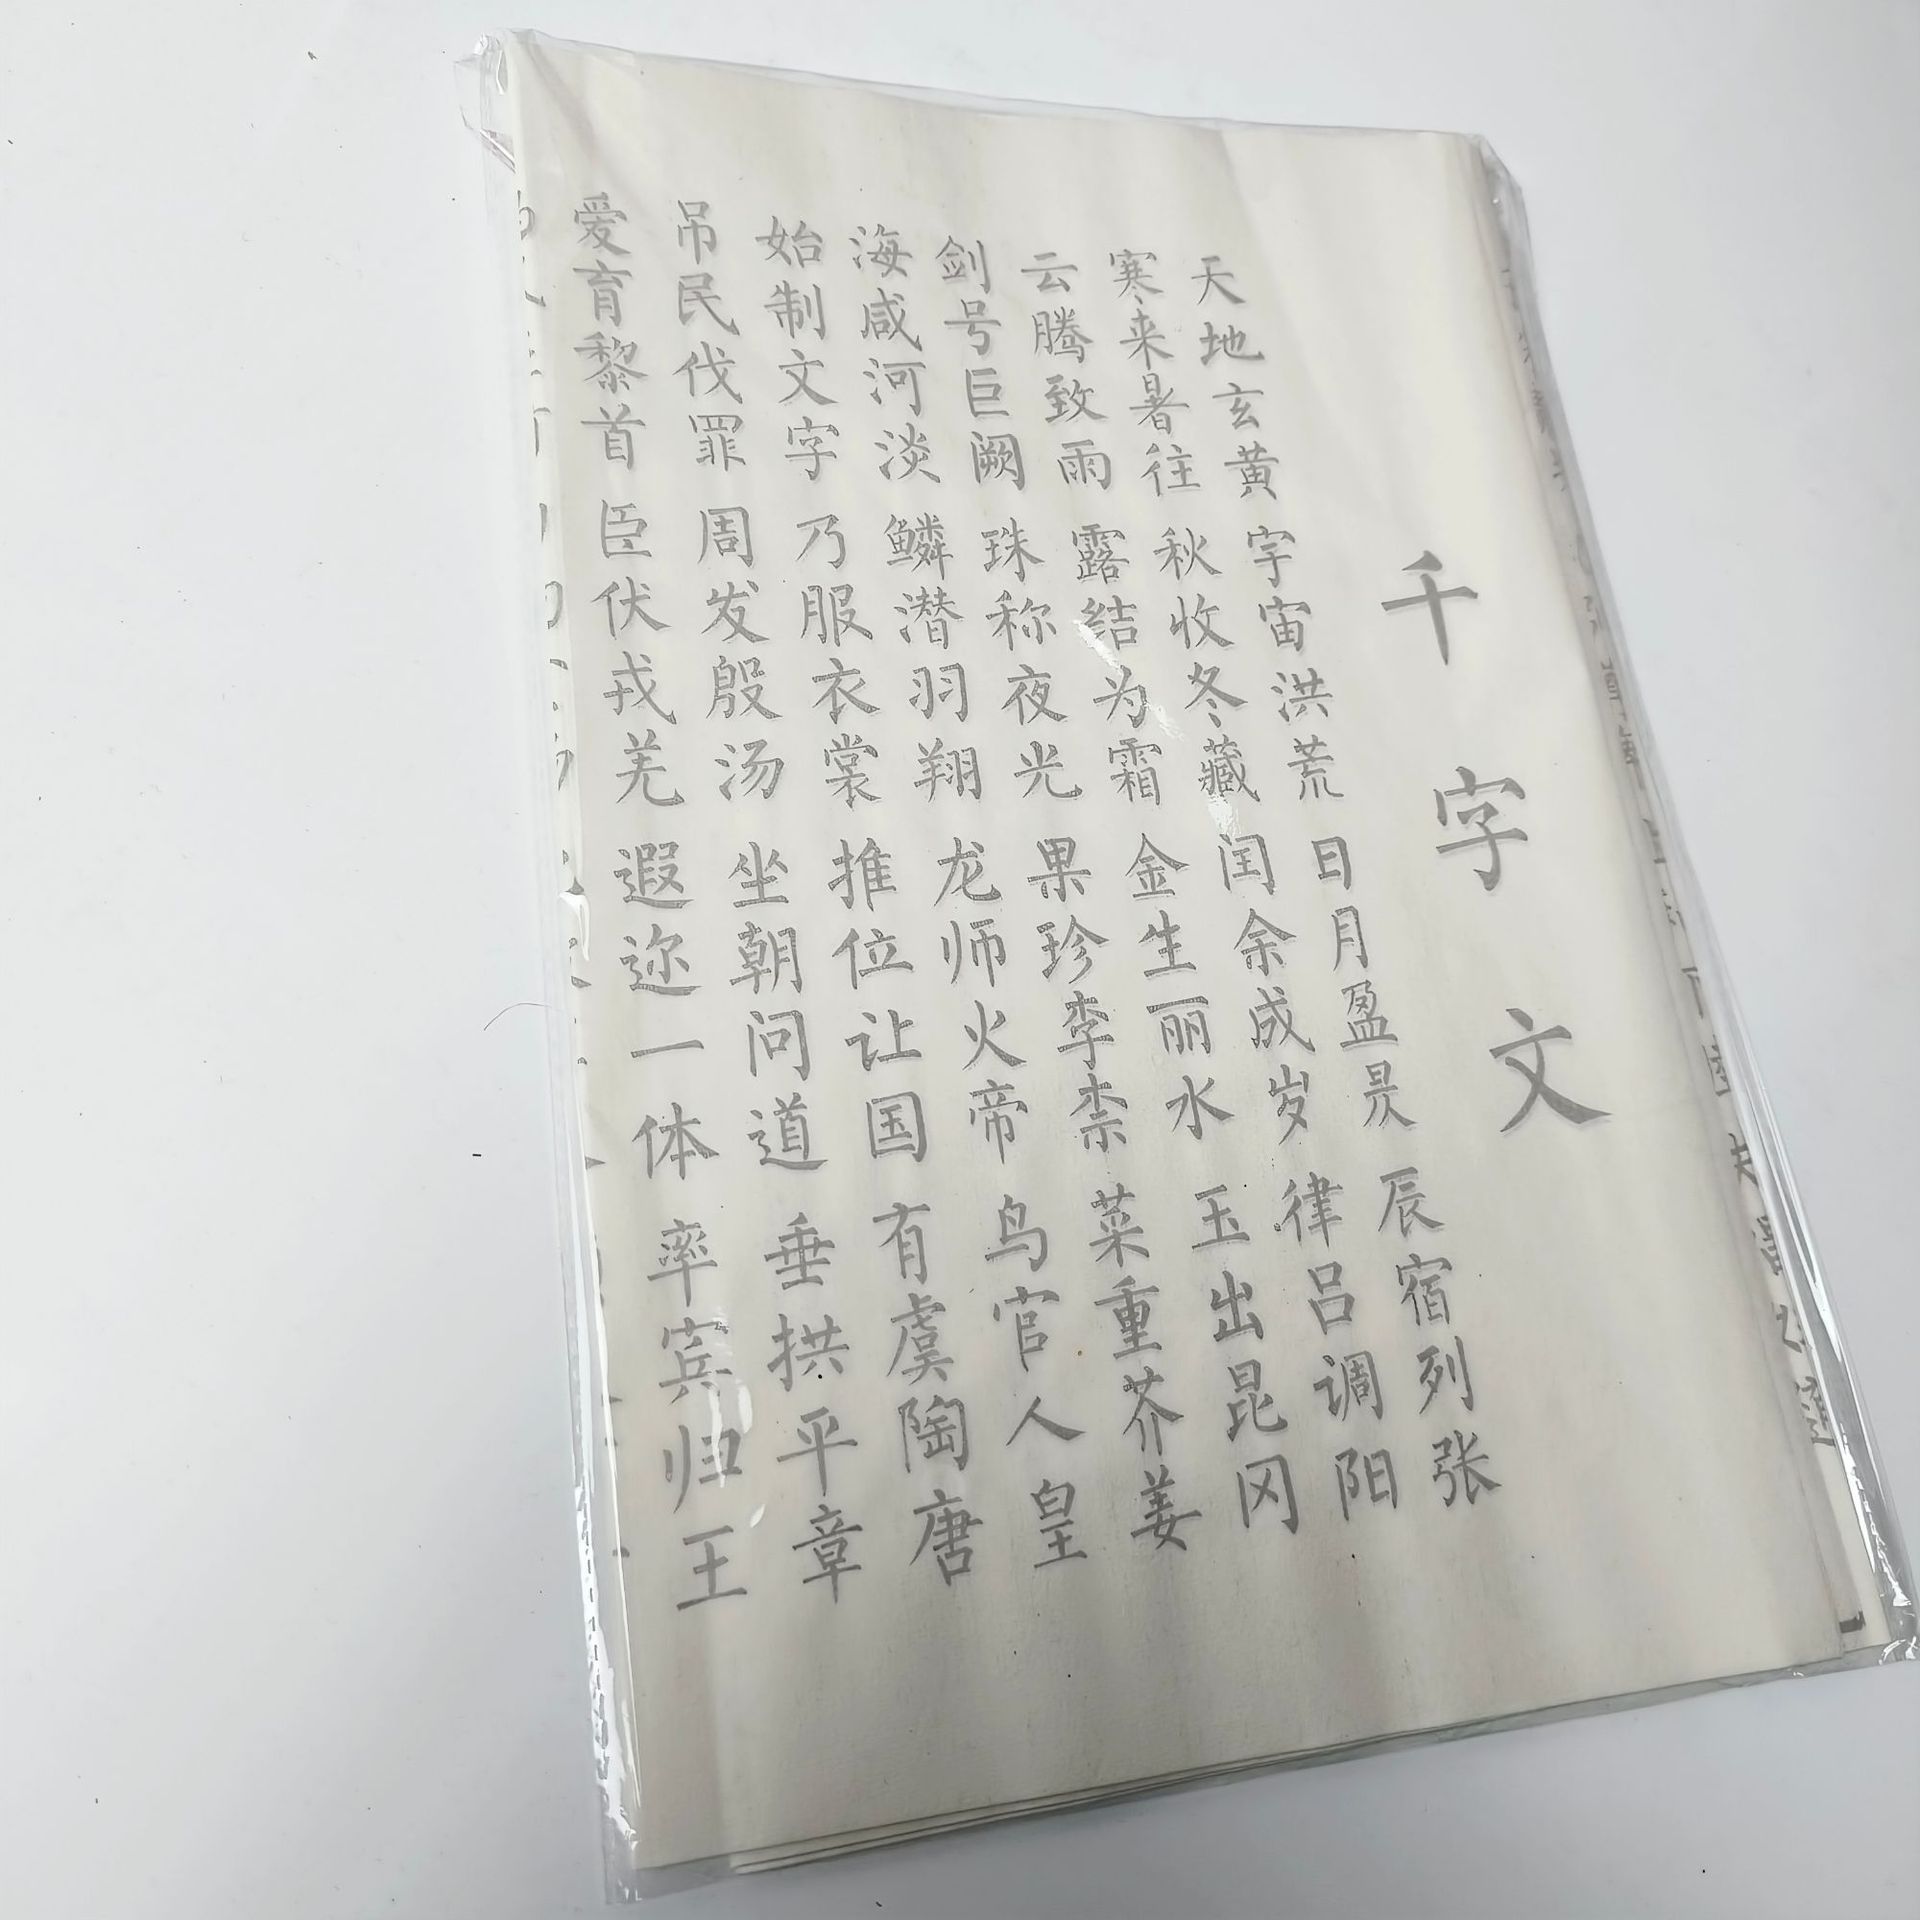 千字文
天地玄黄 宇宙洪荒 日月盈昃 辰宿列张
寒来暑往 秋收冬藏 闰余成岁 律吕调阳
云腾致雨 露结为霜 金生丽水 玉出昆冈
剑号巨阙 珠称夜光 果珍李柰 菜重芥姜
海咸河淡 鳞潜羽翔 龙师火帝 鸟官人皇
始制文字 乃服衣裳 推位让国 有虞陶唐
吊民伐罪 周发殷汤 坐朝问道 垂拱平章
爱育黎首 臣伏戎羌 遐迩一体 率宾归王